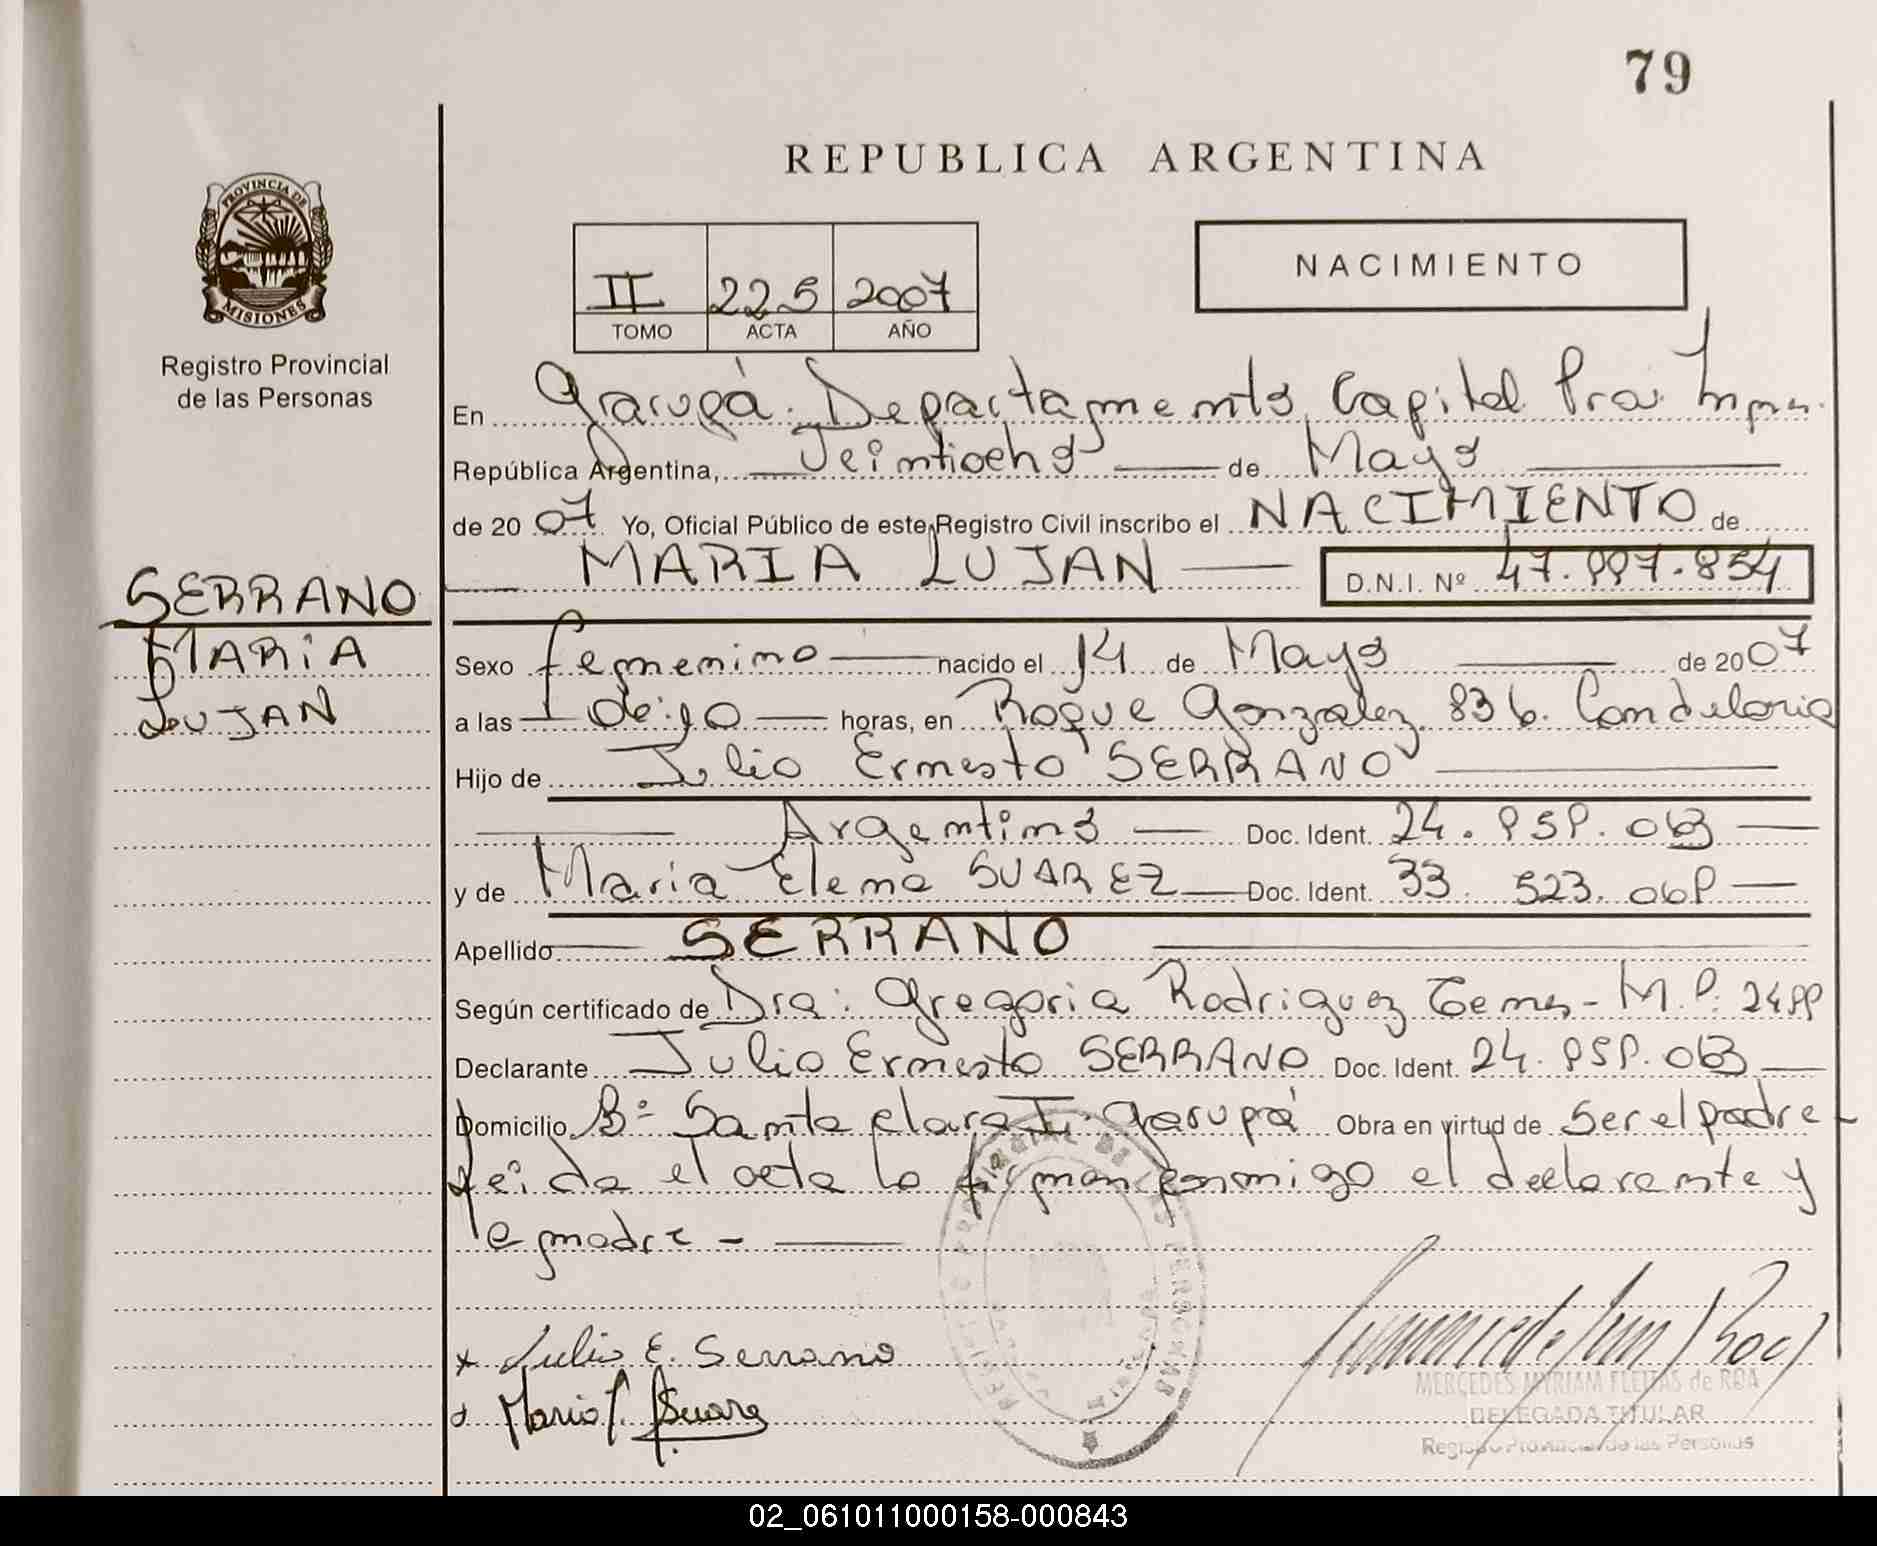 79
REPUBLICA ARGENTINA
PROVINCIA DE
MISIONES
Registro Provincial
de las Personas
II 225 2007
TOMO ACTA AÑO
NACIMIENTO
En Garupá. Departamento Capital
República Argentina, Veintiocho de Mayo
de 2007 Yo, Oficial Público de este Registro Civil inscribo el NACIMIENTO de
MARIA LUJAN D.N.I. Nº 47.997.854
SERRANO
MARIA
LUJAN
Sexo femenino nacido el 14 de Mayo de 2007
a las horas, en Roque Gonzalez 836. Candelaria
Hijo de Julio Ernesto SERRANO
Argentino Doc. Ident. 24.959.063
y de Maria Elena SUAREZ Doc. Ident. 33.523.069
Apellido SERRANO
Según certificado de Dra: Gregoria Rodriguez - M.P: 2499
Declarante Julio Ernesto SERRANO Doc. Ident. 24.959.063
Domicilio Bº Santa Clara I. Garupá Obra en virtud de Ser el padre -
Leida el acta la firman conmigo el declarante y
la madre -
Julio E. Serrano
Suarez
REGISTRO PROVINCIAL DE LAS PERSONAS
MERCEDES MYRIAM FLEITAS de ROA
DELEGADA TITULAR
Registro Provincial de las Personas
02_061011000158-000843